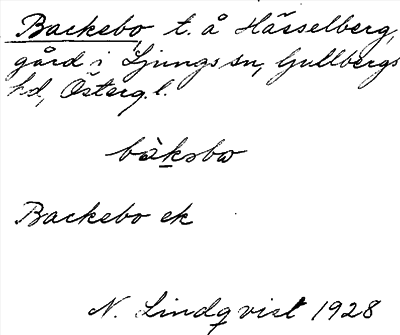 Backebo t. å Hässelberg,
gård i Ljungs sn, Gullbergs
hd, Österg. l.
bàksbω
Backebo ek
N. Lindqvist 1928